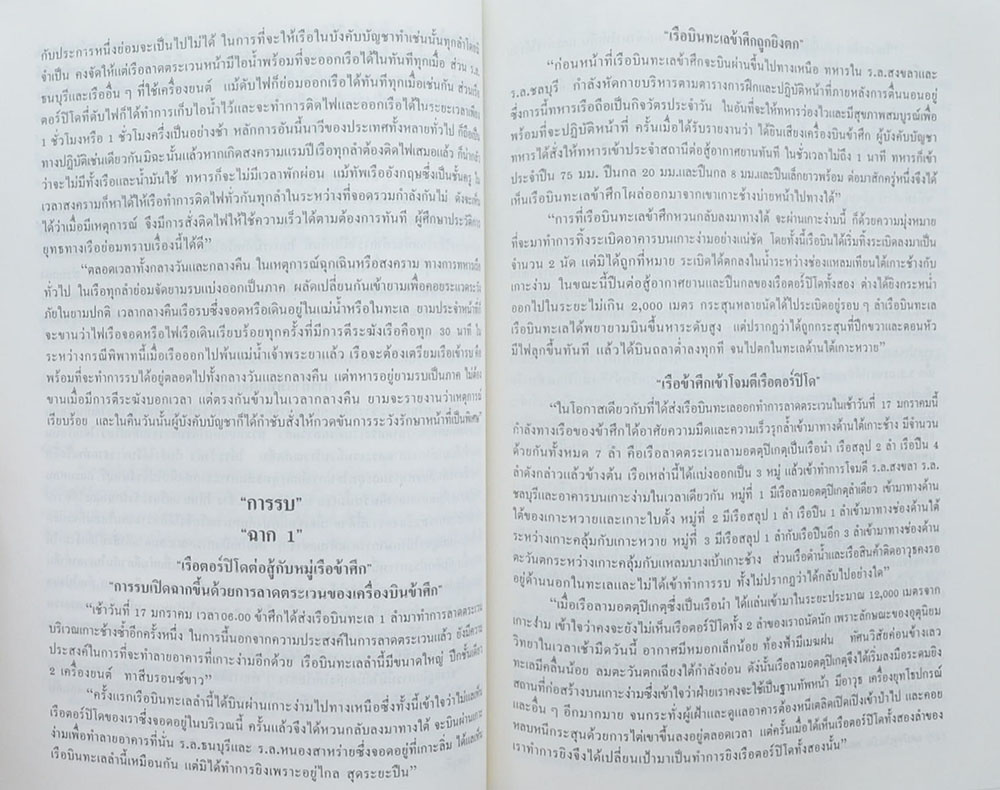 กับประการหนึ่งย่อมจะเป็นไปไม่ได้ ในการที่จะให้เรือในบังคับบัญชาทำเช่นนั้นทุกลำโดยมิ
จำเป็น คงจัดให้แต่เรือลาดตระเวนหน้ามีไอน้ำพร้อมที่จะออกเรือได้ในทันทีทุกเมื่อ ส่วน ร.ล.
ธนบุรีและเรืออื่น ๆ ที่ใช้เครื่องยนต์ แม้ดับไฟก็ย่อมออกเรือได้ทันทีทุกเมื่อเช่นกัน ส่วนเรือ
ตอร์ปิโดที่ดับไฟก็ได้ทำการเก็บไอน้ำไว้และจะทำการติดไฟและออกเรือได้ในระยะเวลาเพียง
1 ชั่วโมงหรือ 1 ชั่วโมงครึ่งเป็นอย่างช้า หลักการอันนี้นาวีของประเทศทั้งหลายทั่วไป ก็ถือเป็น
ทางปฏิบัติเช่นเดียวกันมิฉะนั้นแล้วหากเกิดสงครามแรมปีเรือทุกลำต้องติดไฟเสมอแล้ว ก็น่ากลัว
ว่าจะไม่มีทั้งเรือและน้ำมันใช้ ทหารก็จะไม่มีเวลาพักผ่อน แม้ทัพเรืออังกฤษซึ่งเป็นชั้นครู ใน
เวลาสงครามก็หาได้ให้เรือทำการติดไฟทั่วกันทุกลำในระหว่างที่จอดรวมกำลังกันไม่ ดังจะเห็น
ได้ว่าเมื่อมีเหตุการณ์ จึงมีการสั่งติดไฟให้ใช้ความเร็วได้ตามต้องการทันที ผู้ศึกษาประวัติการ
ยุทธทางเรือย่อมทราบเรื่องนี้ได้ดี”
“ตลอดเวลาทั้งกลางวันและกลางคืน ในเหตุการณ์ฉุกเฉินหรือสงคราม ทางการทหารเรือ
ทั่วไป ในเรือทุกลำย่อมจัดยามรบแบ่งออกเป็นภาค ผลัดเปลี่ยนกันเข้ายามเพื่อคอยระแวดระวัง
ภัยในยามปกติ เวลากลางคืนเรือรบซึ่งจอดหรือเดินอยู่ในแม่น้ำหรือในทะเล ยามประจำหน้าที่ก็
จะขานว่าไฟเรือจอดหรือไฟเรือเดินเรียบร้อยทุกครั้งที่มีการตีระฆังเรือคือทุก 30 นาที ใน
ระหว่างกรณีพิพาทนี้เมื่อเรือออกไปพ้นแม่น้ำเจ้าพระยาแล้ว เรือจะต้องเตรียมเรือเข้ารบ คือ
พร้อมที่จะทำการรบได้อยู่ตลอดไปทั้งกลางวันและกลางคืน แต่ทหารอยู่ยามรบเป็นภาค ไม่ต้อง
ขานเมื่อมีการตีระฆังบอกเวลา แต่ตรงกันข้ามในเวลากลางคืน ยามจะรายงานว่าเหตุการณ์
เรียบร้อย และในคืนวันนั้นผู้บังคับบัญชาก็ได้กำชับสั่งให้กวดขันการระวังรักษาหน้าที่เป็นพิเศษ”
“การรบ”
“ฉาก 1”
“เรือตอร์ปิโดต่อสู้กับหมู่เรือข้าศึก”
“การรบเปิดฉากขึ้นด้วยการลาดตระเวนของเครื่องบินข้าศึก”
“เช้าวันที่ 17 มกราคม เวลา 06.00 ข้าศึกได้ส่งเรือบินทะเล 1 ลำมาทำการลาดตระเวน
บริเวณเกาะช้างซ้ำอีกครั้งหนึ่ง ในการนี้นอกจากความประสงค์ในการลาดตระเวนแล้ว ยังมีความ
ประสงค์ในการที่จะทำลายอาคารที่เกาะง่ามอีกด้วย เรือบินทะเลลำนี้มีขนาดใหญ่ ปีกชั้นเดียว
2 เครื่องยนต์ ทาสีบรอนซ์ขาว”
“ครั้งแรกเรือบินทะเลลำนี้ได้บินผ่านเกาะง่ามไปทางเหนือซึ่งทั้งนี้เข้าใจว่าไม่แลเห็น
เรือตอร์ปิโดของเราซึ่งจอดอยู่ในบริเวณนี้ ครั้นแล้วจึงได้หวนกลับลงมาทางใต้ จะบินผ่านเกาะ
ง่ามเพื่อทำลายอาคารที่นั่น ร.ล.ธนบุรีและ ร.ล.หนองสาหร่ายซึ่งจอดอยู่ที่เกาะลิ่ม ได้แลเห็น
เรือบินทะเลลำนี้เหมือนกัน แต่มิได้ทำการยิงเพราะอยู่ไกล สุดระยะปืน”
“เรือบินทะเลข้าศึกถูกยิงตก”
“ก่อนหน้าที่เรือบินทะเลข้าศึกจะบินผ่านขึ้นไปทางเหนือ ทหารใน ร.ล.สงขลาและ
ร.ล.ชลบุรี กำลังหัดกายบริหารตามตารางการฝึกและปฏิบัติหน้าที่ภายหลังการตื่นนอนอยู่
ซึ่งการนี้ทหารเรือถือเป็นกิจวัตรประจำวัน ในอันที่จะให้ทหารว่องไวและมีสุขภาพสมบูรณ์เพื่อ
พร้อมที่จะปฏิบัติหน้าที่ ครั้นเมื่อได้รับรายงานว่า ได้ยินเสียงเครื่องบินข้าศึก ผู้บังคับบัญชา
ทหารได้สั่งให้ทหารเข้าประจำสถานีต่อสู้อากาศยานทันที ในชั่วเวลาไม่ถึง 1 นาที ทหารก็เข้า
ประจำปืน 75 มม. ปืนกล 20 มม.และปืนกล 8 มม.และปืนเล็กยาวพร้อม ต่อมาสักครู่หนึ่งจึงได้
เห็นเรือบินทะเลข้าศึกโผล่ออกมาจากเขาเกาะช้างบ่ายหน้าไปทางใต้”
“การที่เรือบินทะเลข้าศึกหวนกลับลงมาทางใต้ จะผ่านเกาะง่ามนี้ ก็ด้วยความมุ่งหมาย
ที่จะมาทำการทิ้งระเบิดอาคารบนเกาะง่ามอย่างแน่ชัด โดยทั้งนี้เรือบินได้เริ่มทิ้งระเบิดลงมาเป็น
จำนวน 2 นัด แต่มิได้ถูกที่หมาย ระเบิดได้ตกลงในน้ำระหว่างช่องแหลมเทียนใต้เกาะช้างกับ
เกาะง่าม ในขณะนี้ปืนต่อสู้อากาศยานและปืนกลของเรือตอร์ปิโดทั้งสอง ต่างได้ยิงกระหน่ำ
ออกไปในระยะไม่เกิน 2,000 เมตร กระสุนหลายนัดได้ไประเบิดอยู่รอบ ๆ ลำเรือบินทะเล
เรือบินทะเลได้พยายามบินขึ้นหาระดับสูง แต่ปรากฏว่าได้ถูกกระสุนที่ปีกขวาและตอนหัว
มีไฟลุกขึ้นทันที แล้วได้บินถลาต่ำลงทุกที จนไปตกในทะเลด้านใต้เกาะหวาย”
“เรือข้าศึกเข้าโจมตีเรือตอร์ปิโด”
“ในโอกาสเดียวกับที่ได้ส่งเรือบินทะเลออกทำการลาดตระเวนในเช้าวันที่ 17 มกราคมนี้
กำลังทางเรือของข้าศึกได้อาศัยความมืดและความเร็วรุกล้ำเข้ามาทางด้านใต้เกาะช้าง มีจำนวน
ด้วยกันทั้งหมด 7 ลำ คือเรือลาดตระเวนลามอตต์ปิเกต์เป็นเรือนำ เรือสลุป 2 ลำ เรือปืน 4
ลำดังกล่าวแล้วข้างต้น เรือเหล่านี้ได้แบ่งออกเป็น 3 หมู่ แล้วเข้าทำการโจมตี ร.ล.สงขลา ร.ล.
ชลบุรีและอาคารบนเกาะง่ามในเวลาเดียวกัน หมู่ที่ 1 มีเรือลามอตต์ปิเกต์ลำเดียว เข้ามาทางด้าน
ใต้ของเกาะหวายและเกาะใบดั้ง หมู่ที่ 2 มีเรือสลุป 1 ลำ เรือปืน 1 ลำเข้ามาทางช่องด้านใต้
ระหว่างเกาะคลุ้มกับเกาะหวาย หมู่ที่ 3 มีเรือสลุป 1 ลำกับเรือปืนอีก 3 ลำเข้ามาทางช่องด้าน
ตะวันตกระหว่างเกาะคลุ้มกับแหลมบางเบ้าเกาะช้าง ส่วนเรือดำน้ำและเรือสินค้าติดอาวุธคงรอ
อยู่ด้านนอกในทะเลและไม่ได้เข้าทำการรบ ทั้งไม่ปรากฏว่าได้กลับไปอย่างใด”
“เมื่อเรือลามอตต์ปิเกต์ซึ่งเป็นเรือนำ ได้แล่นเข้ามาในระยะประมาณ 12,000 เมตรจาก
เกาะง่าม เข้าใจว่าคงจะยังไม่เห็นเรือตอร์ปิโดทั้ง 2 ลำของเราถนัดนัก เพราะลักษณะของอุตุนิยม
วิทยาในเวลาเช้ามืดวันนี้ อากาศมีหมอกเล็กน้อย ท้องฟ้ามีเมฆฝน ทัศนวิสัยค่อนข้างเลว
ทะเลมีคลื่นน้อย ลมตะวันตกเฉียงใต้กำลังอ่อน ดังนั้นเรือลามอตต์ปิเกต์จึงได้เริ่มลงมือระดมยิง
สถานที่ก่อสร้างบนเกาะง่ามซึ่งเข้าใจว่าฝ่ายเราคงจะใช้เป็นฐานทัพหน้า มีอาวุธ เครื่องยุทโธปกรณ์
และอื่น ๆ อีกมากมาย จนกระทั่งผู้เฝ้าและดูแลอาคารต้องหนีเตลิดเปิดเปิงเข้าป่าไป และคอย
หลบหนีกระสุนด้วยการไต่เขาขึ้นลงอยู่ตลอดเวลา แต่ครั้นเมื่อได้เห็นเรือตอร์ปิโดทั้งสองลำของ
เราทำการยิงจึงได้เปลี่ยนเป้ามาเป็นทำการยิงเรือตอร์ปิโดทั้งสองนั้น”